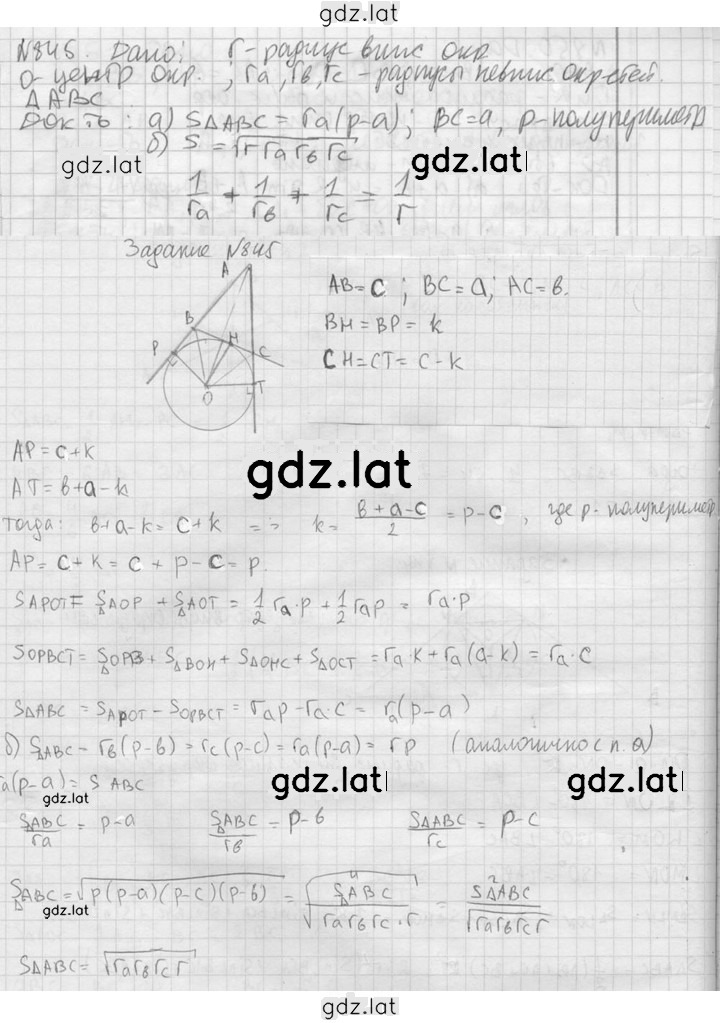 gdz.lat
N845. Дано: r - радиус впис окр
О - центр окр. ; ra, rв, rc - радиусы невпис окр-стей.
ΔABC
Док-ть: а) SΔABC = ra(p-a); BC=a, p-полупериметр
б) S = √r ra rв rc
gdz.lat
gdz.lat
1/ra + 1/rв + 1/rc = 1/r
Задание N845
A
B
P
H
C
O
T
AB=c ; BC=a; AC=в.
BH=BP=k
CH=CT=c-k
AP=c+k
AT=в+a-k
gdz.lat
тогда: в+a-k=c+k => k= в+a-c/2 = p-c, где p-полупериметр
AP=c+k=c+p-c=p.
SAPOT= SΔAOP + SΔAOT = 1/2 ra·p + 1/2 rap = ra·p
SOPBCT= SΔOPB + SΔBOH + SΔOHC + SΔOCT = ra·k+ra(a-k)=ra·c
SΔABC = SAPOT - SOPBCT = rap-ra·c = ra(p-a)
б) SΔABC = rв(p-в)=rc(p-c)=ra(p-a)=rp (аналогично с п. а)
ra(p-a)=S ABC
gdz.lat
gdz.lat
gdz.lat
SΔABC/ra = p-a SΔABC/rв = p-в SΔABC/rc = p-c
SΔABC=√p(p-a)(p-c)(p-в) = √SΔABC⁴/rarвrc·r = S²ΔABC/√rarвrcr
gdz.lat
SΔABC= √rarвrcr
gdz.lat